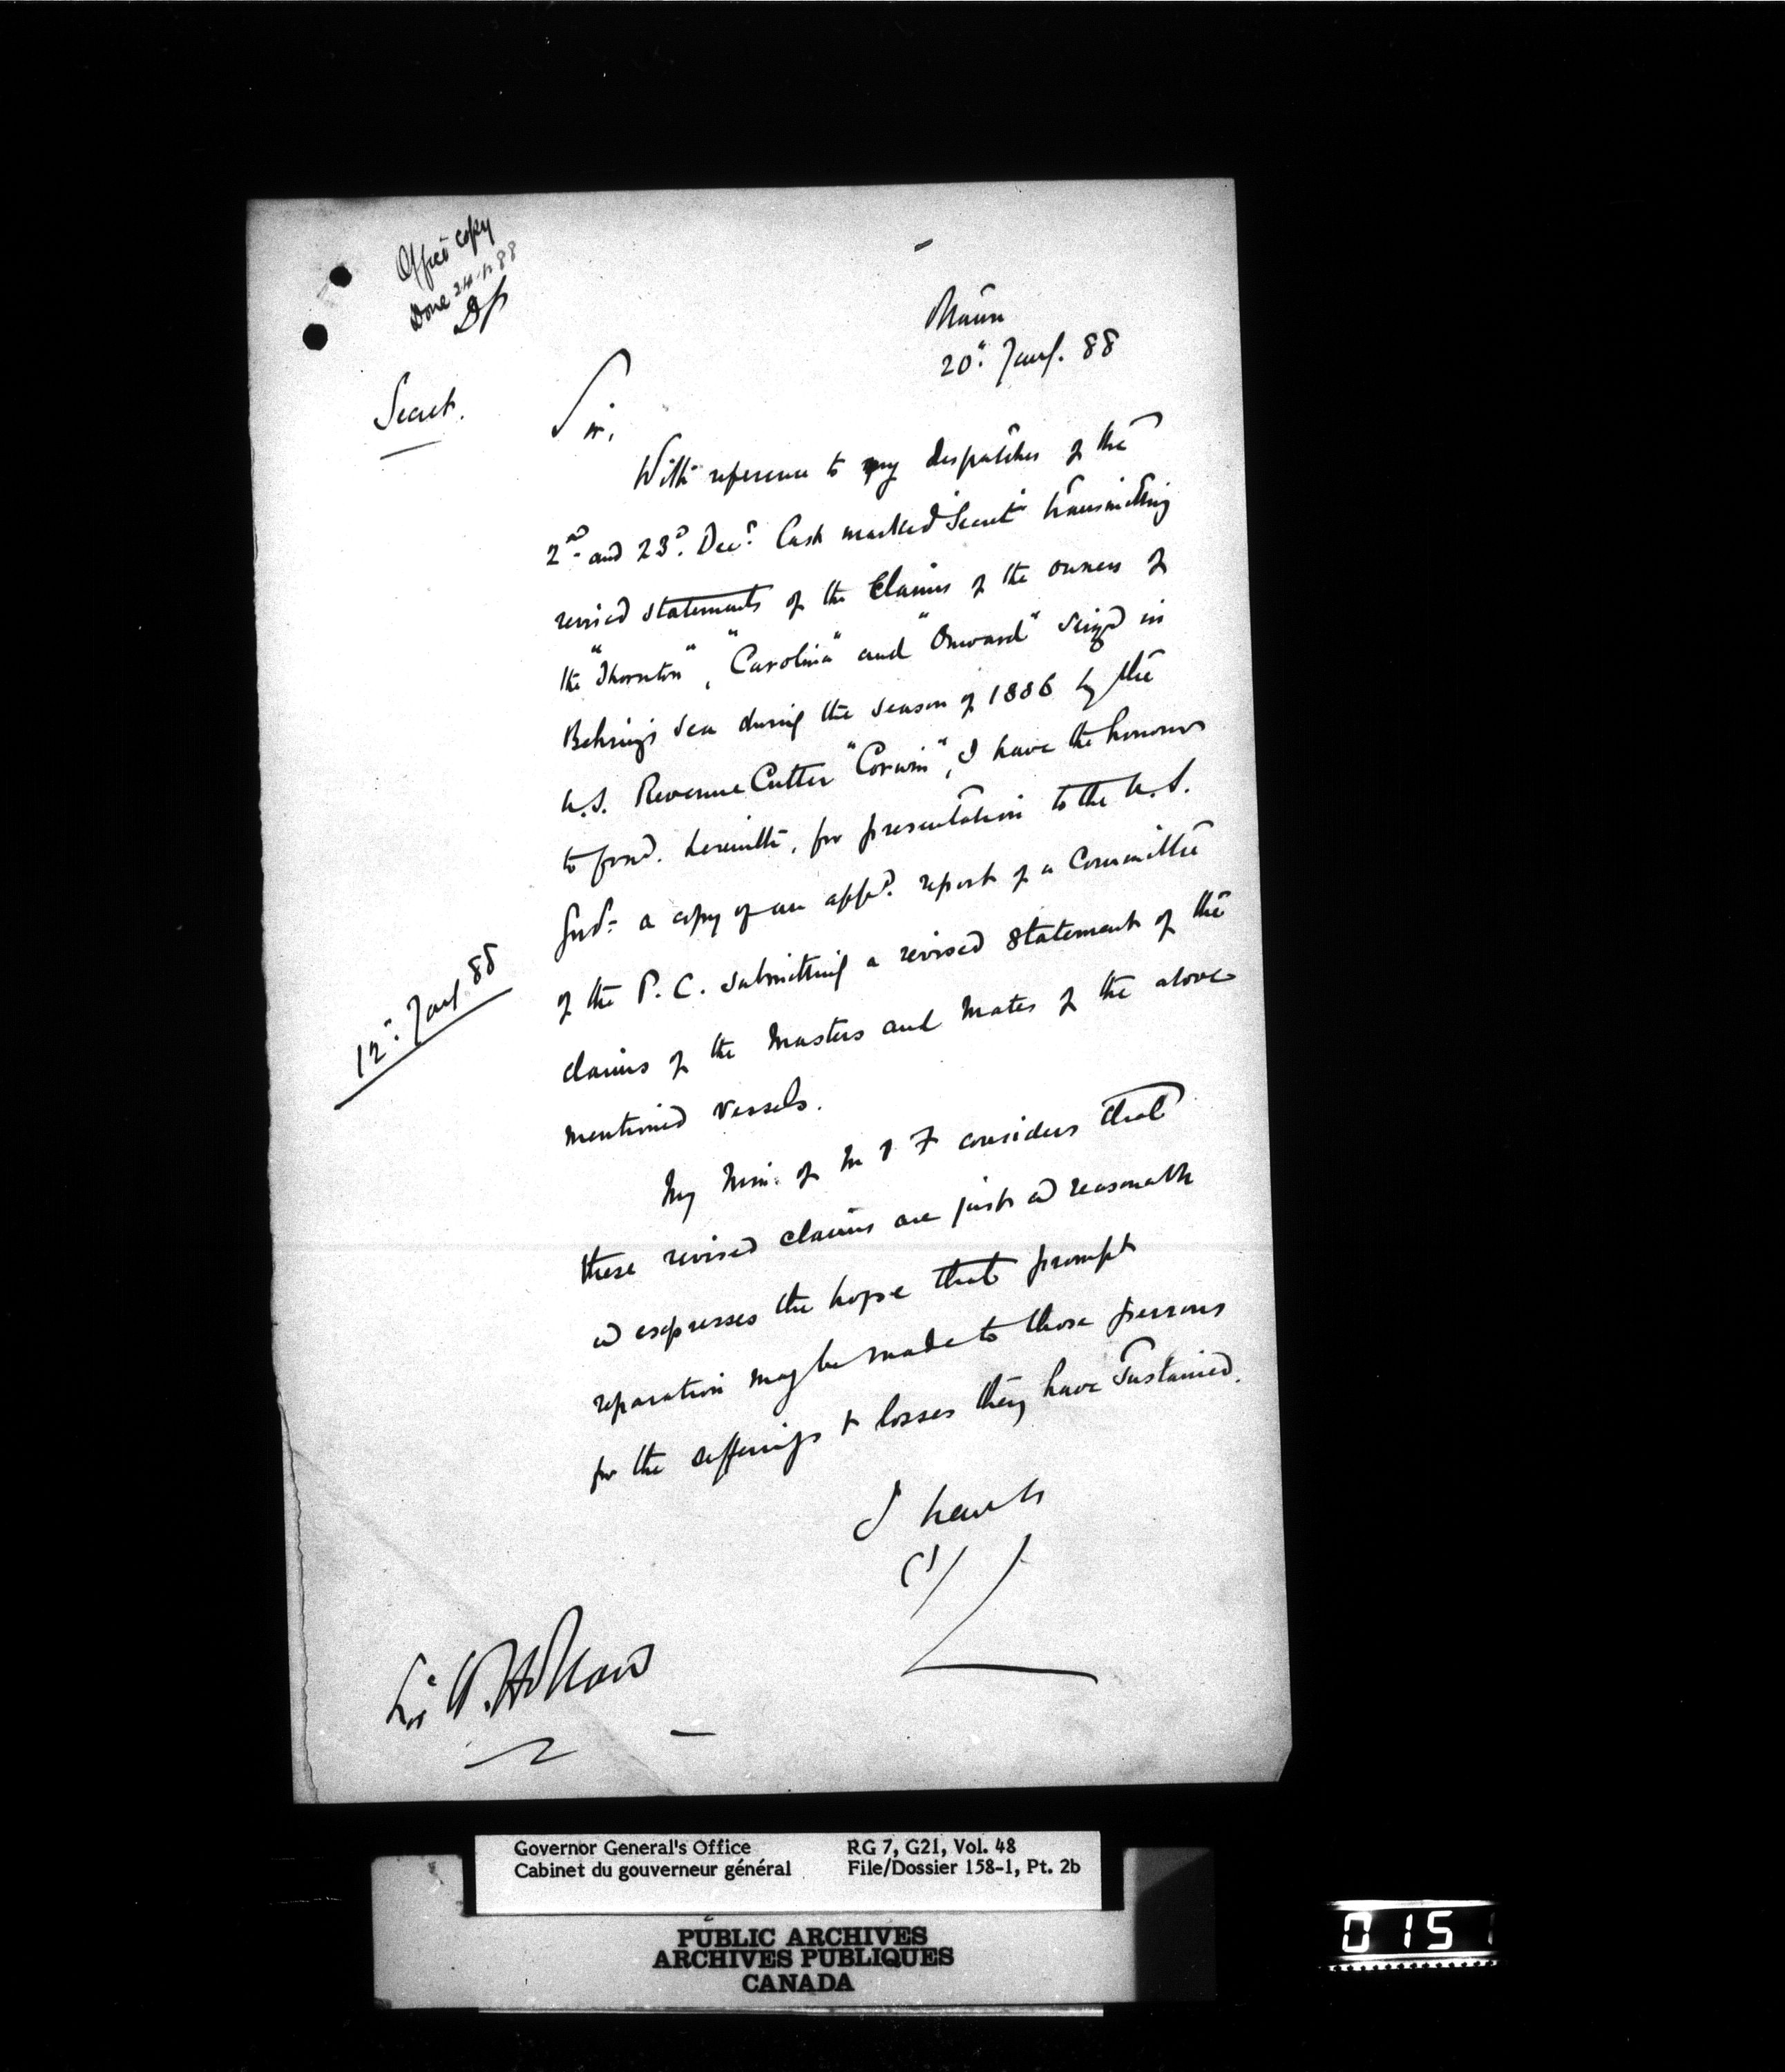 Office copy
Done 24.1.88
20th Jany. 88
Secret.
Sir,
With reference to my despatches of the
2nd. and 23d. Decr. last marked Secret transmitting
revised statements of the Claims of the owners of
the "Thornton", "Carolina" and "Onward" seized in
Behring's Sea during the season of 1886 by the
U.S. Revenue Cutter "Corwin", I have the honour
to forwd. herewith, for presentation to the U.S.
Govt. a copy of an appd. report of a Committee
12th. Jany 88
of the P.C. submitting a revised statement of the
claims of the Masters and Mates of the above
mentioned vessels.
My Min. of M & F considers that
these revised claims are just & reasonable
& expresses the hope that prompt
reparation may be made to those persons
for the sufferings & losses they have sustained.
I have &c
(s)/ L
Sir
Governor General's Office RG 7, G21, Vol. 48
Cabinet du gouverneur général File/Dossier 158-1, Pt. 2b
PUBLIC ARCHIVES
ARCHIVES PUBLIQUES
CANADA
0151